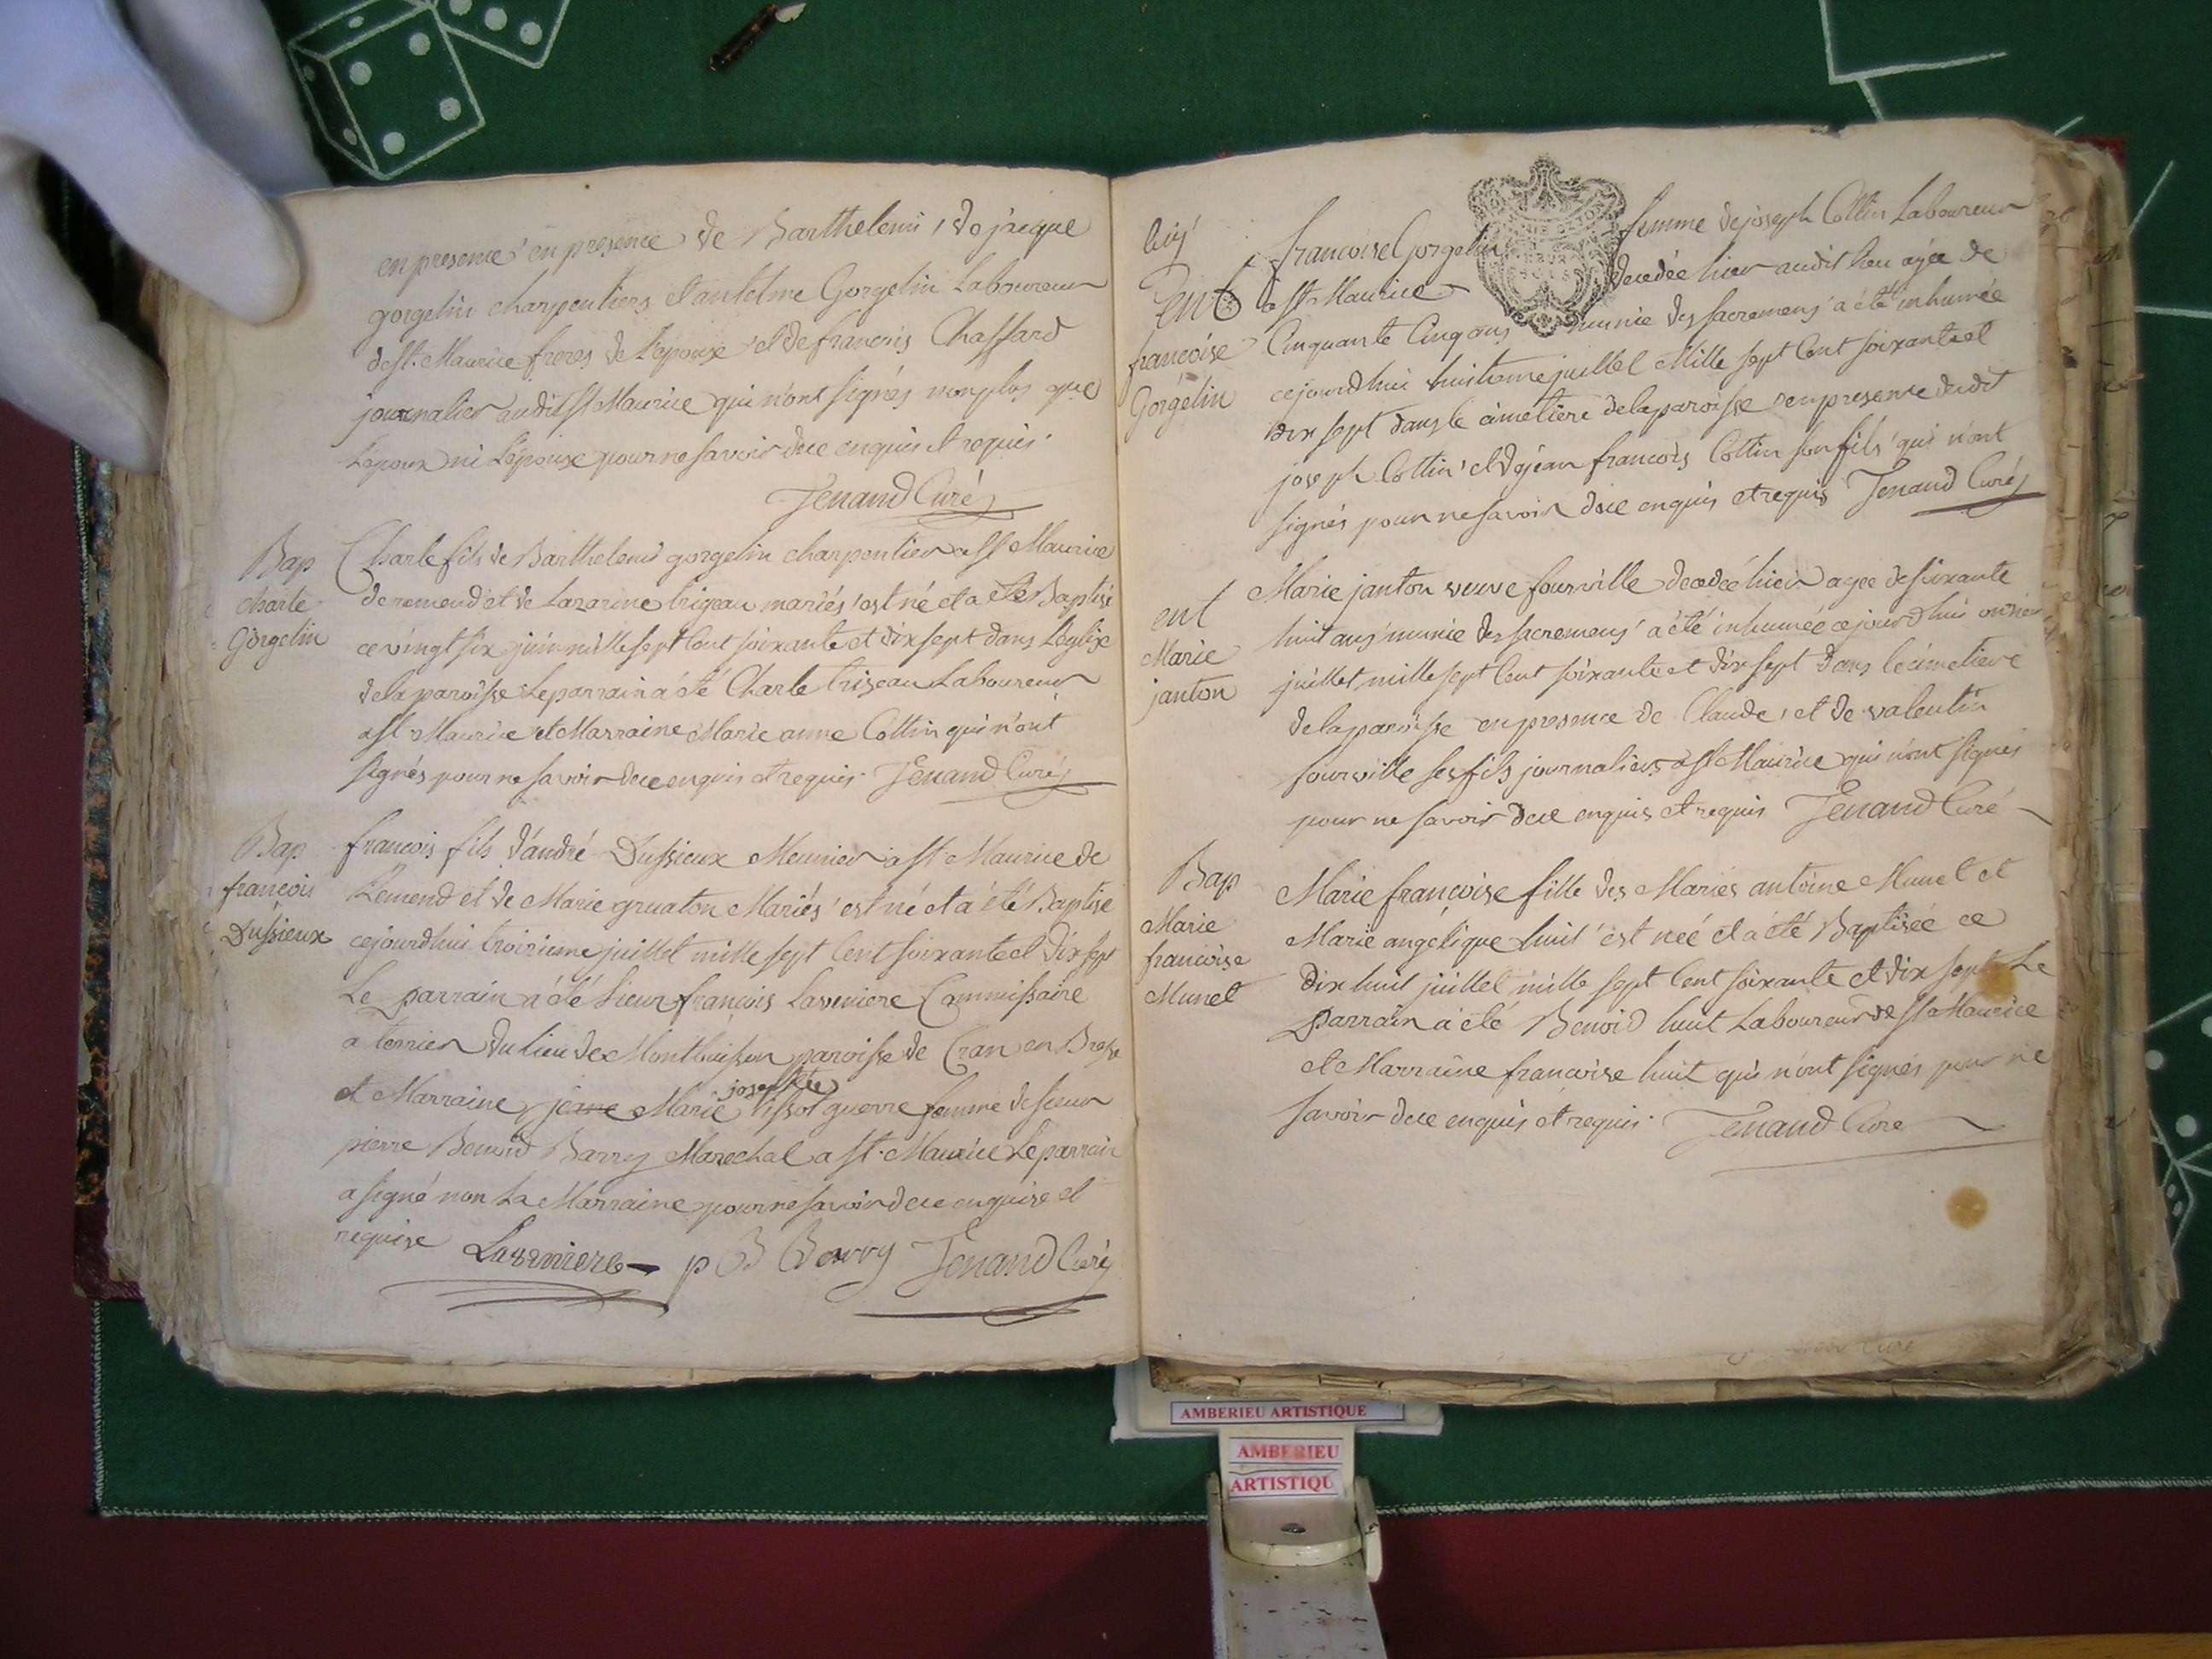 en presence en presence de Barthelemi, de jacque
gorgelin charpentiers et antelme Gorgelin Laboureur
de st. Maurice freres de L'epouse et de francois Chaffard
journalier audit st Maurice qui n'ont signés non plus que
L'epoux ni L'epouse pour ne savoir de ce enquis et requis.
Jenand Curé
Bap
charle
Gorgelin
Charle fils de Barthelemi gorgelin charpentier a st Maurice
de remend et de Lazarine trigeau mariés est né et a eté Baptisé
ce vingt six juin mille sept Cent soixante et dix sept dans L'eglise
de la paroisse Le parrain a été Charle Laboureur
a st Maurice et Marraine Marie anne Collin qui n'ont
signés pour ne savoir de ce enquis et requis. Jenand Curé
Bap
françois
Dussieux
francois fils d'andré Dussieux Meunier a st. Maurice de
Remend et de Marie gruaton Mariés est né et a été Baptisé
cejourdhui troisieme juillet mille sept Cent soixante et dix sept
Le parrain a été Sieur françois Laveniere Commissaire
a terrier du lieu de paroisse de Cran en Bresse
et Marraine jeane Marie josephte guerre femme de sieur
pierre Benoid Barry Marechal a st. Maurice Le parrain
a signé non La Marraine pour ne savoir de ce enquise et
requise Laveniere p B Barry Jenand Curé
Ent
françoise
Gorgelin
francoise Gorgelin femme de joseph Collin Laboureur
a st Maurice decedée hier audit lieu agée de
Cinquante Cinq ans munie des sacremens a été inhumée
cejourdhui huitieme juillet Mille sept Cent soixante et
dix sept dans le cimetiere de la paroisse en presence dudit
joseph Collin et de jean francois Collin son fils qui n'ont
signés pour ne savoir de ce enquis et requis Jenand Curé
ent
Marie
janton
Marie janton veuve fourville decedée hier agée de soixante
huit ans munie des sacremens a été inhumée cejourdhui
juillet mille sept Cent soixante et dix sept dans le cimetiere
de la paroisse en presence de Claude, et de valentin
fourville ses fils journaliers a st Maurice qui n'ont signés
pour ne savoir de ce enquis et requis Jenand Curé
Bap
Marie
francoise
Munet
Marie françoise fille des Mariés antoine Munet et
Marie angelique huit est neé et a été Baptisée ce
dix huit juillet mille sept Cent soixante et dix sept Le
Parrain a été Benoid huit Laboureur de st Maurice
et Marraine francoise huit qui n'ont signés pour ne
savoir de ce enquis et requis. Jenand Cure
AMBERIEU ARTISTIQUE
AMBERIEU
ARTISTIQU